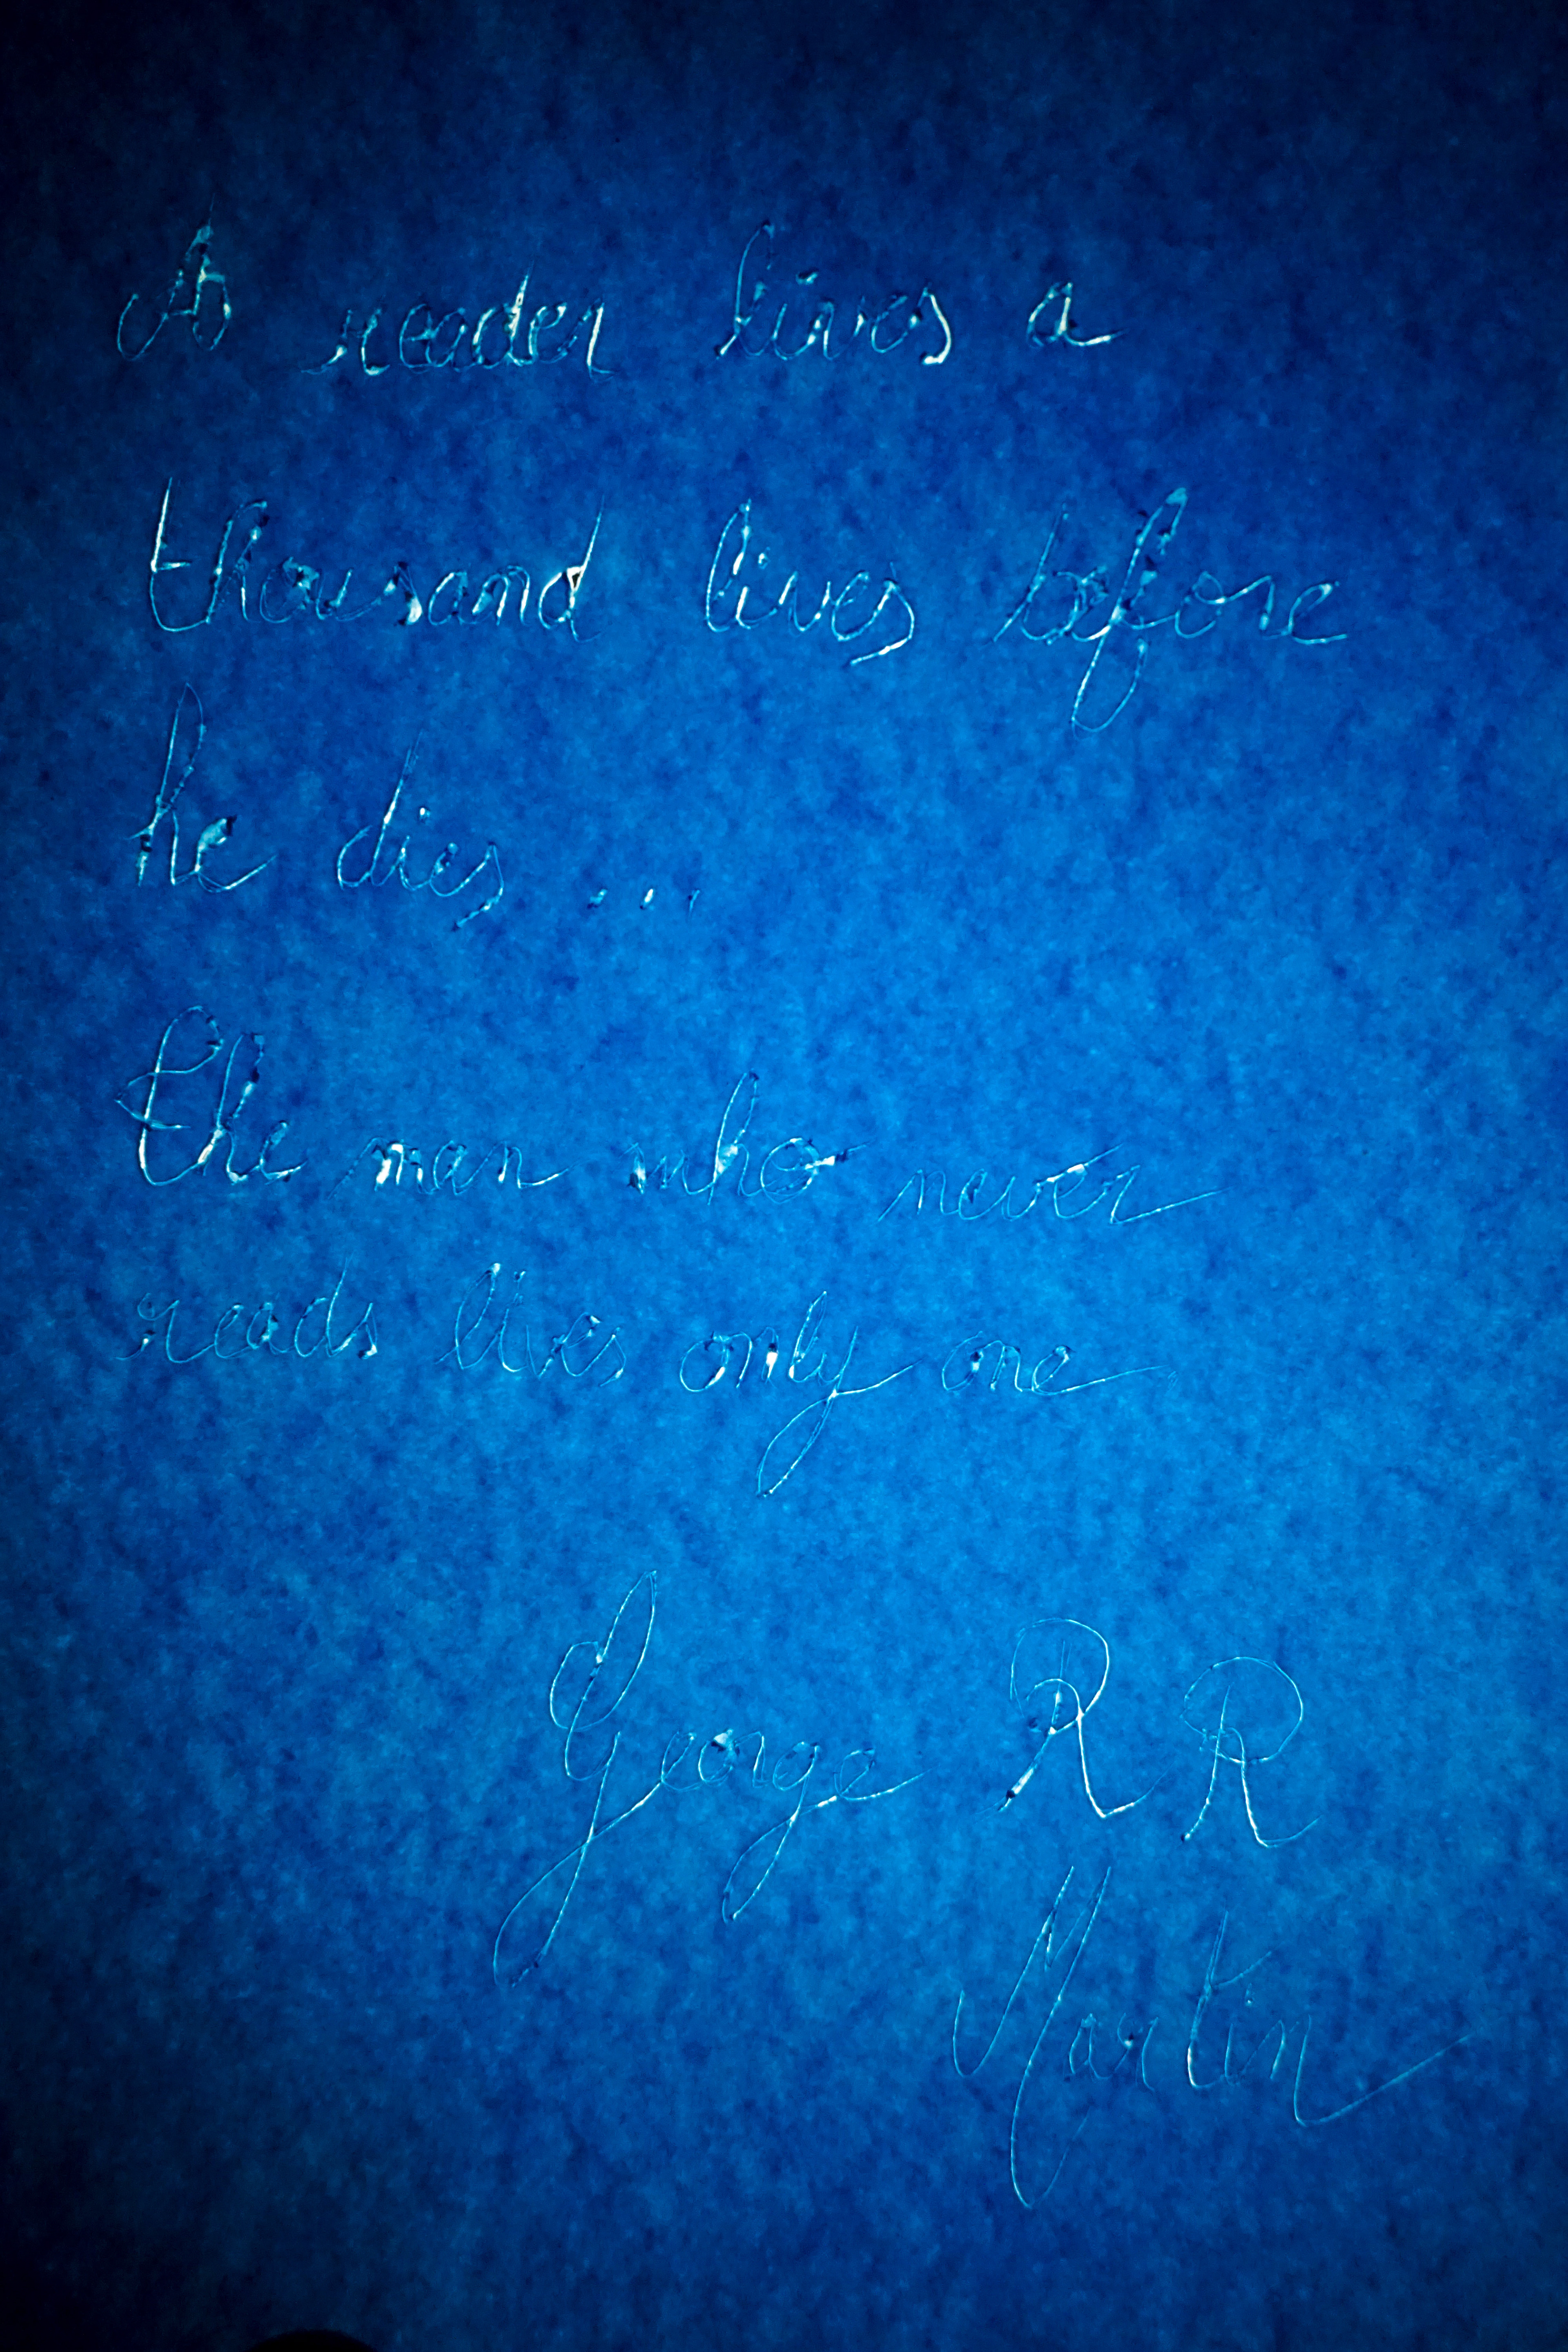 A reader lives a
thousand lives before
he dies ...
The man who never
reads lives only one.
George R R
Martin